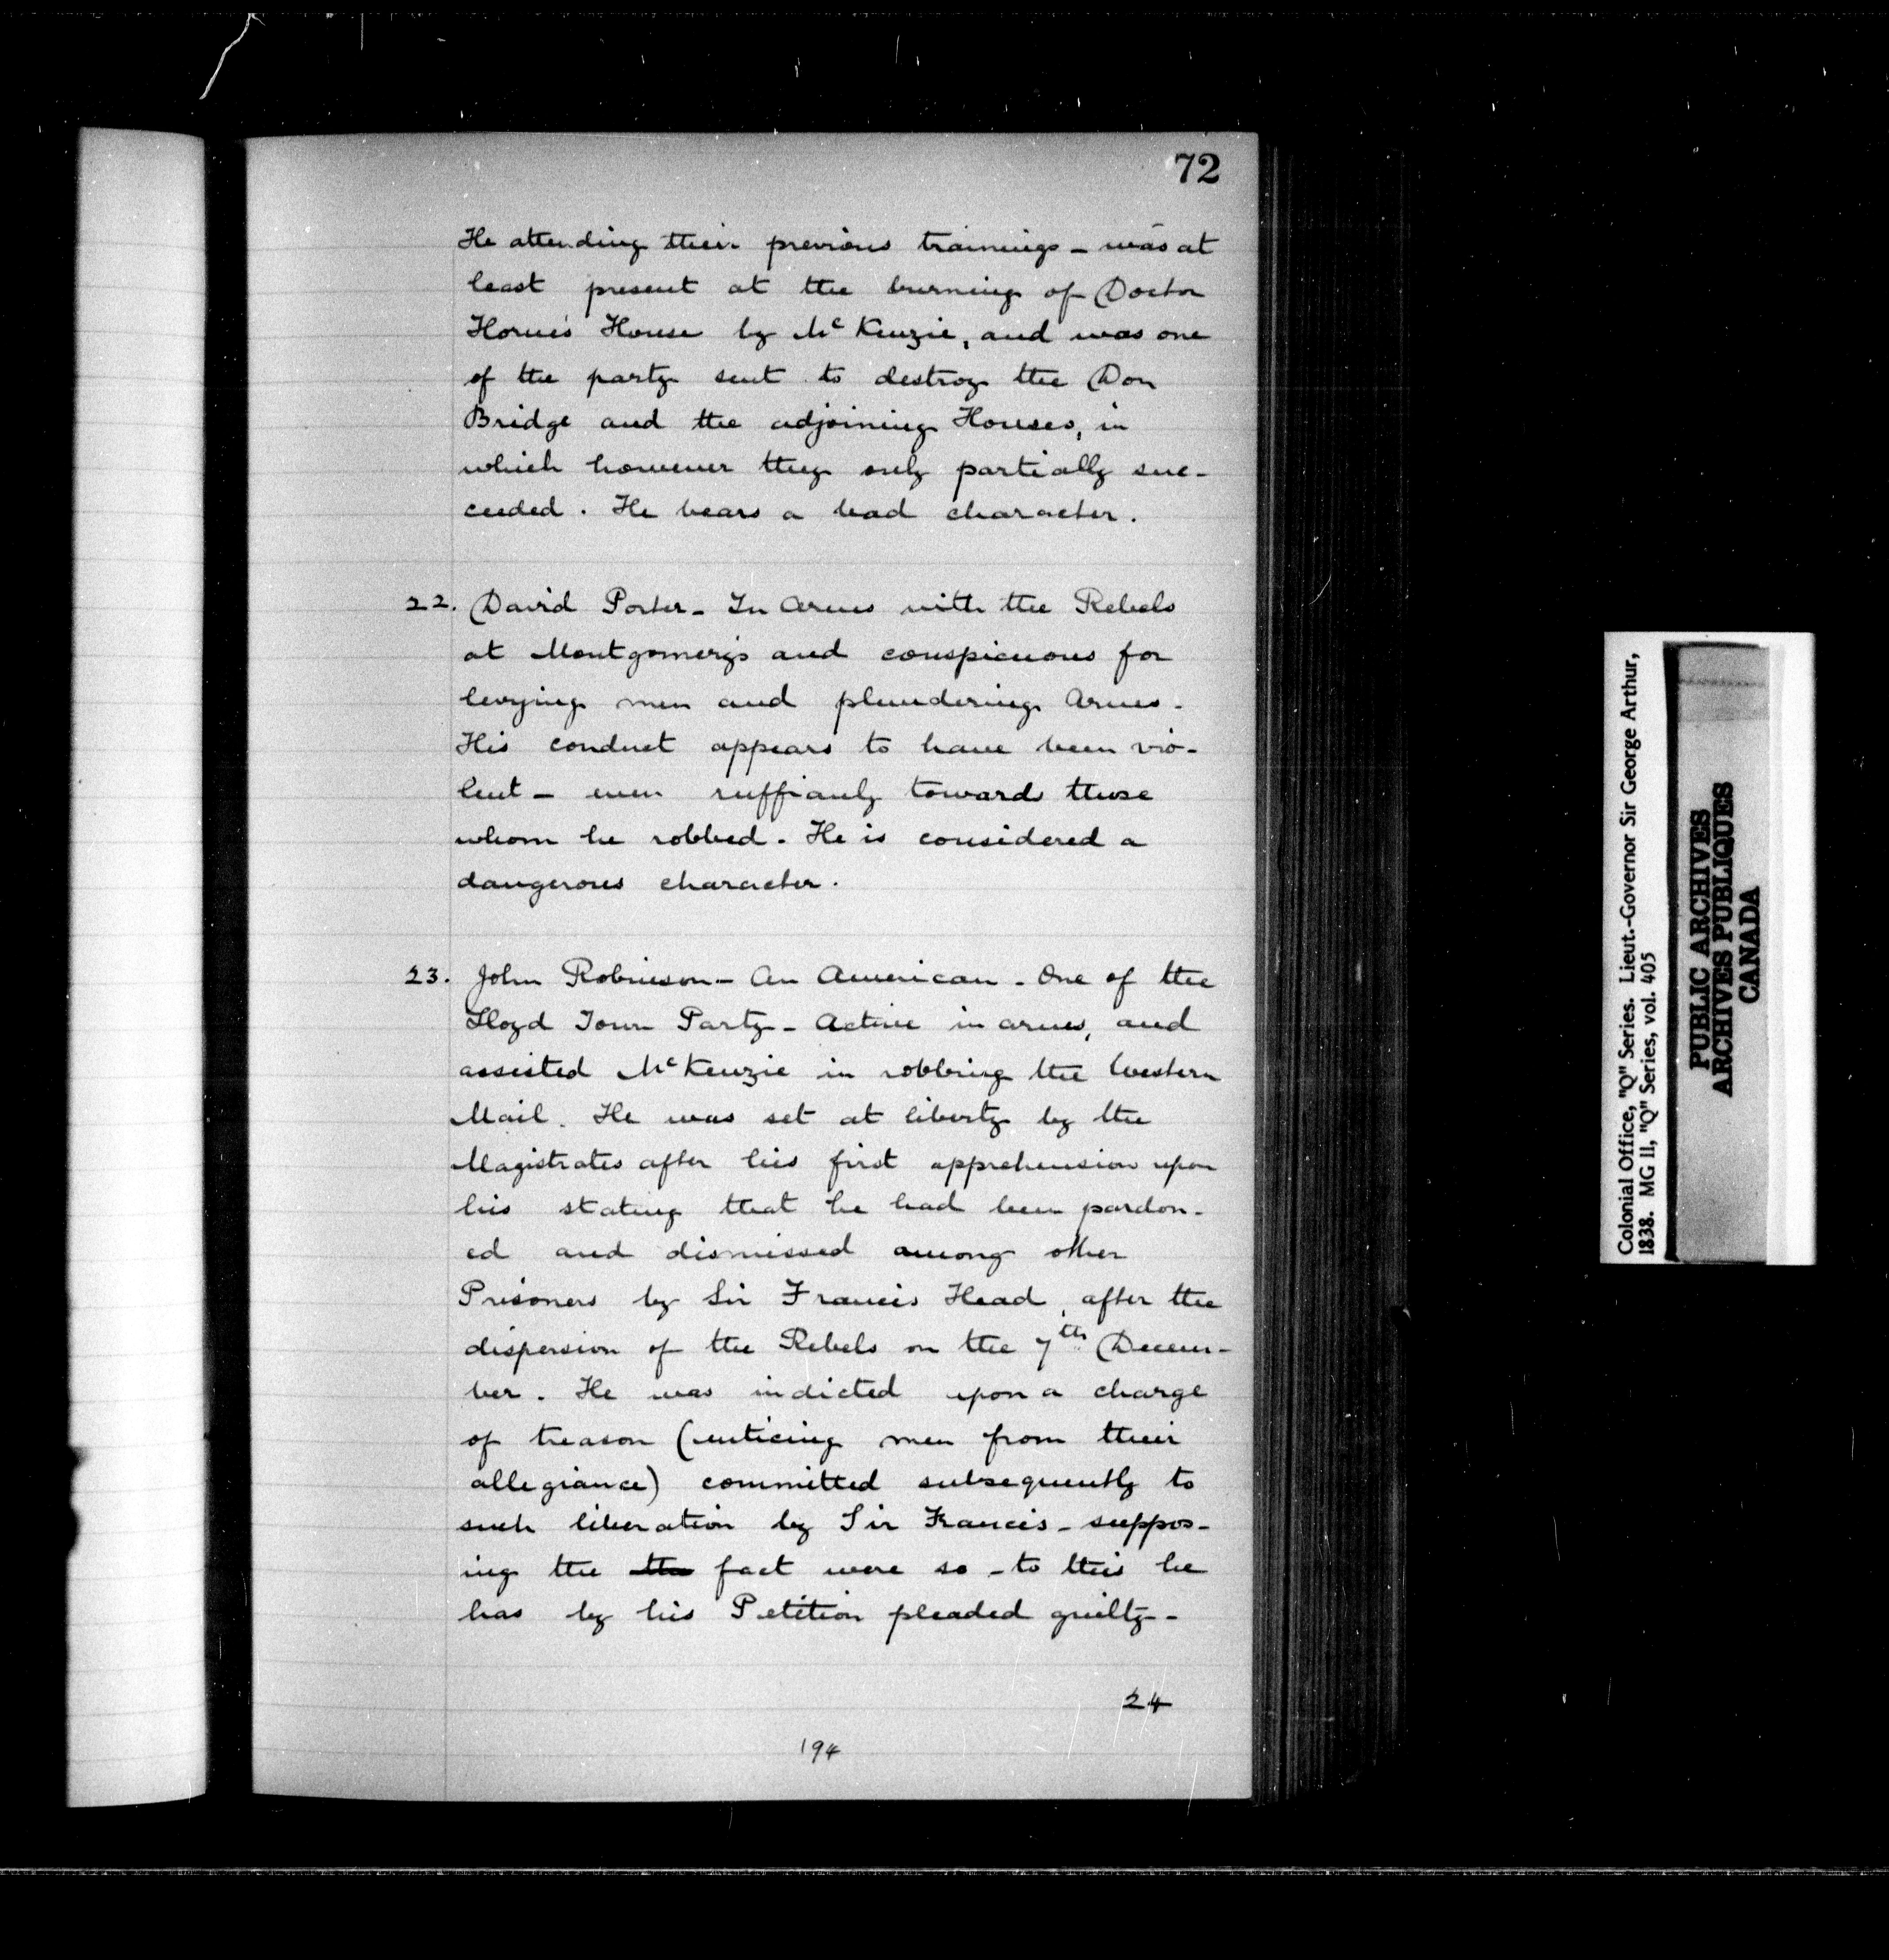 72
He attending their previous trainings - was at
least present at the burning of Doctor
Horne's House by McKenzie, and was one
of the party sent to destroy the Don
Bridge and the adjoining Houses, in
which however they only partially suc-
ceeded. He bears a bad character.
22. David Porter - In Arms with the Rebels
at Montgomery's and conspicuous for
levying men and plundering Arms.
His conduct appears to have been vio-
lent - even ruffianly towards those
whom he robbed. He is considered a
dangerous character.
23. John Robinson - An American - One of the
Lloyd Town Party - Active in arms, and
assisted McKenzie in robbing the Western
Mail. He was set at liberty by the
Magistrates after his first apprehension upon
his stating that he had been pardon-
ed and dismissed among other
Prisoners by Sir Francis Head, after the
dispersion of the Rebels on the 7th Decem-
ber. He was indicted upon a charge
of treason (enticing men from their
allegiance) committed subsequently to
such liberation by Sir Francis - suppos-
ing the the fact were so - to this he
has by his Petition pleaded guilty -
24
194
Colonial Office, "Q" Series. Lieut.-Governor Sir George Arthur,
1838. MG 11, "Q" Series, vol. 405
PUBLIC ARCHIVES
ARCHIVES PUBLIQUES
CANADA